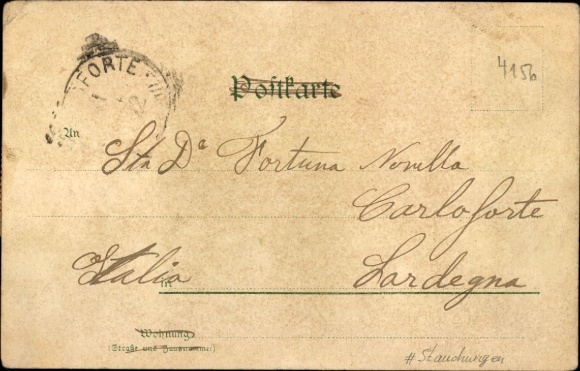 FORTE
4156
Postkarte
An
Sta Dª Fortuna Novella
Carloforte
Italia in Sardegna
Wohnung
(Straße und Hausnummer)
#Stauchungen